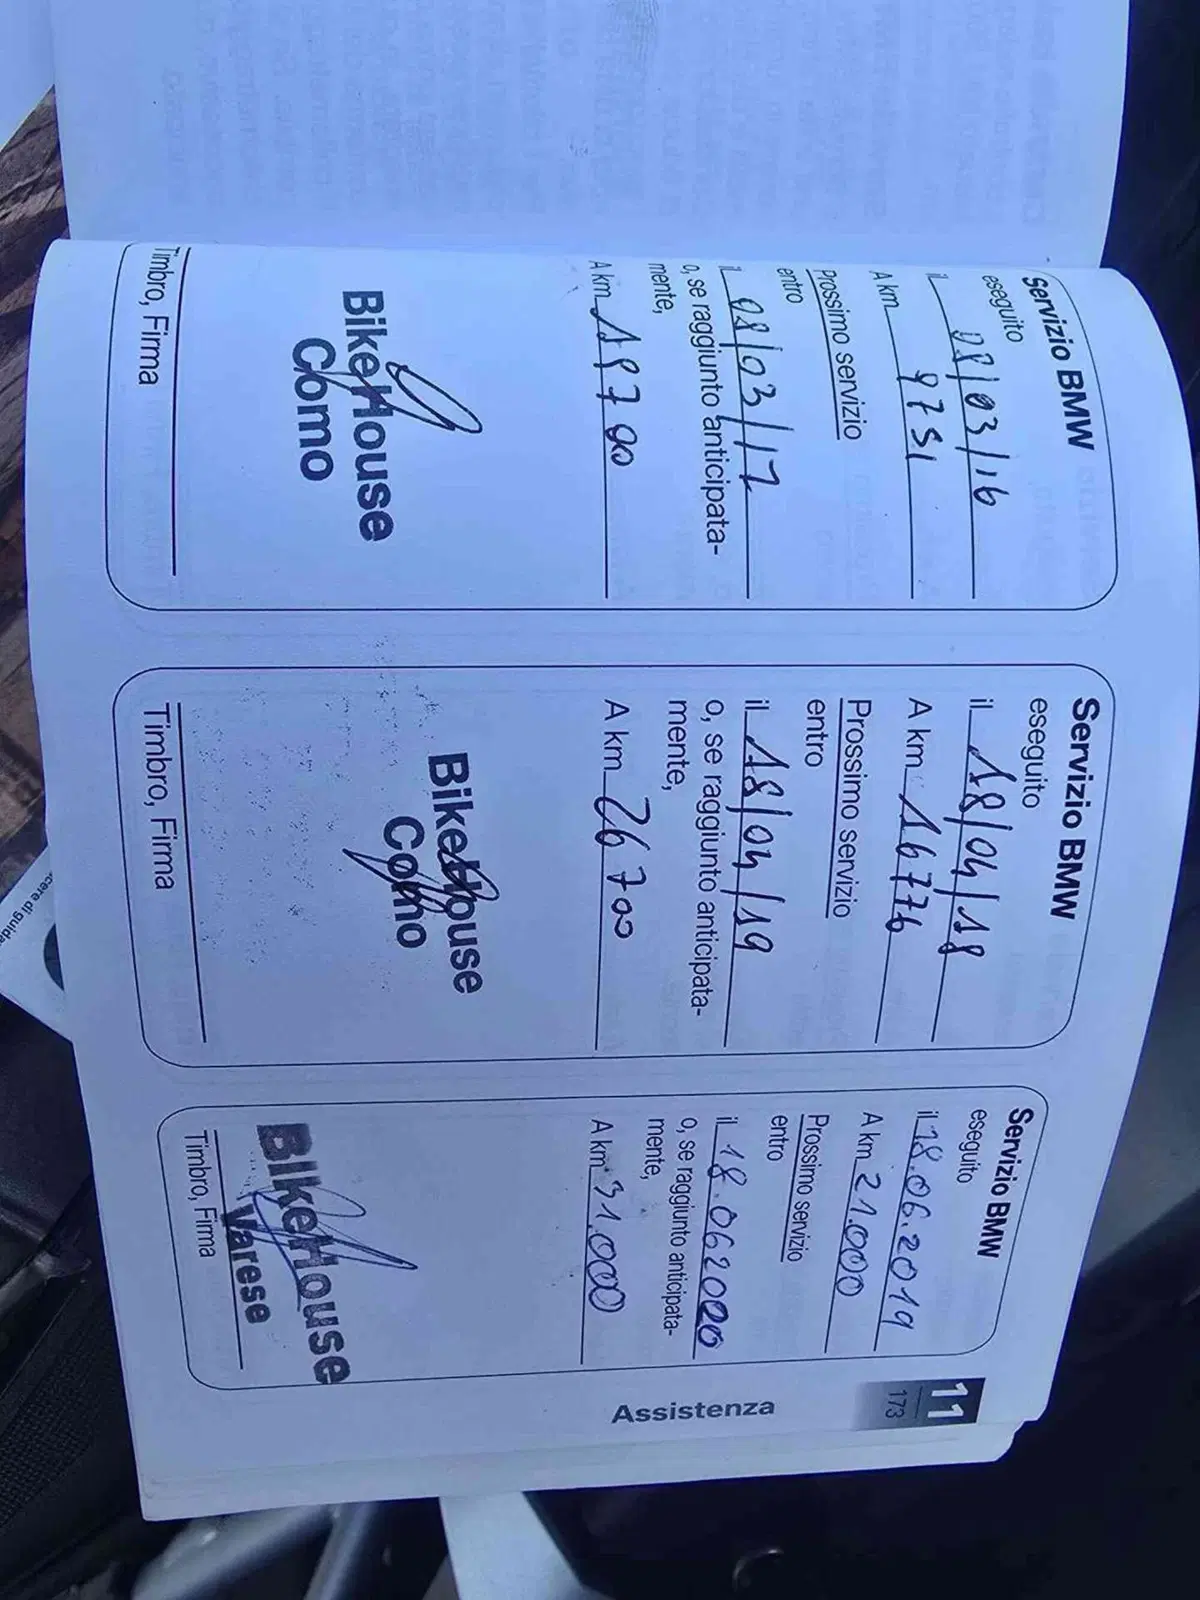 Servizio BMW
eseguito
il 08/03/16
A km 9751
Prossimo servizio
entro
il 08/03/17
o, se raggiunto anticipata-
mente,
A km 19700
BikeHouse
Como
Timbro, Firma
Servizio BMW
eseguito
il 18/04/18
A km 16776
Prossimo servizio
entro
il 18/04/19
o, se raggiunto anticipata-
mente,
A km 26700
BikeHouse
Como
Timbro, Firma
Servizio BMW
eseguito
il 18.06.2019
A km 21.000
Prossimo servizio
entro
il 18.062020
o, se raggiunto anticipata-
mente,
A km 31.000
BikeHouse
Varese
Timbro, Firma
11
173
Assistenza
cere di guida